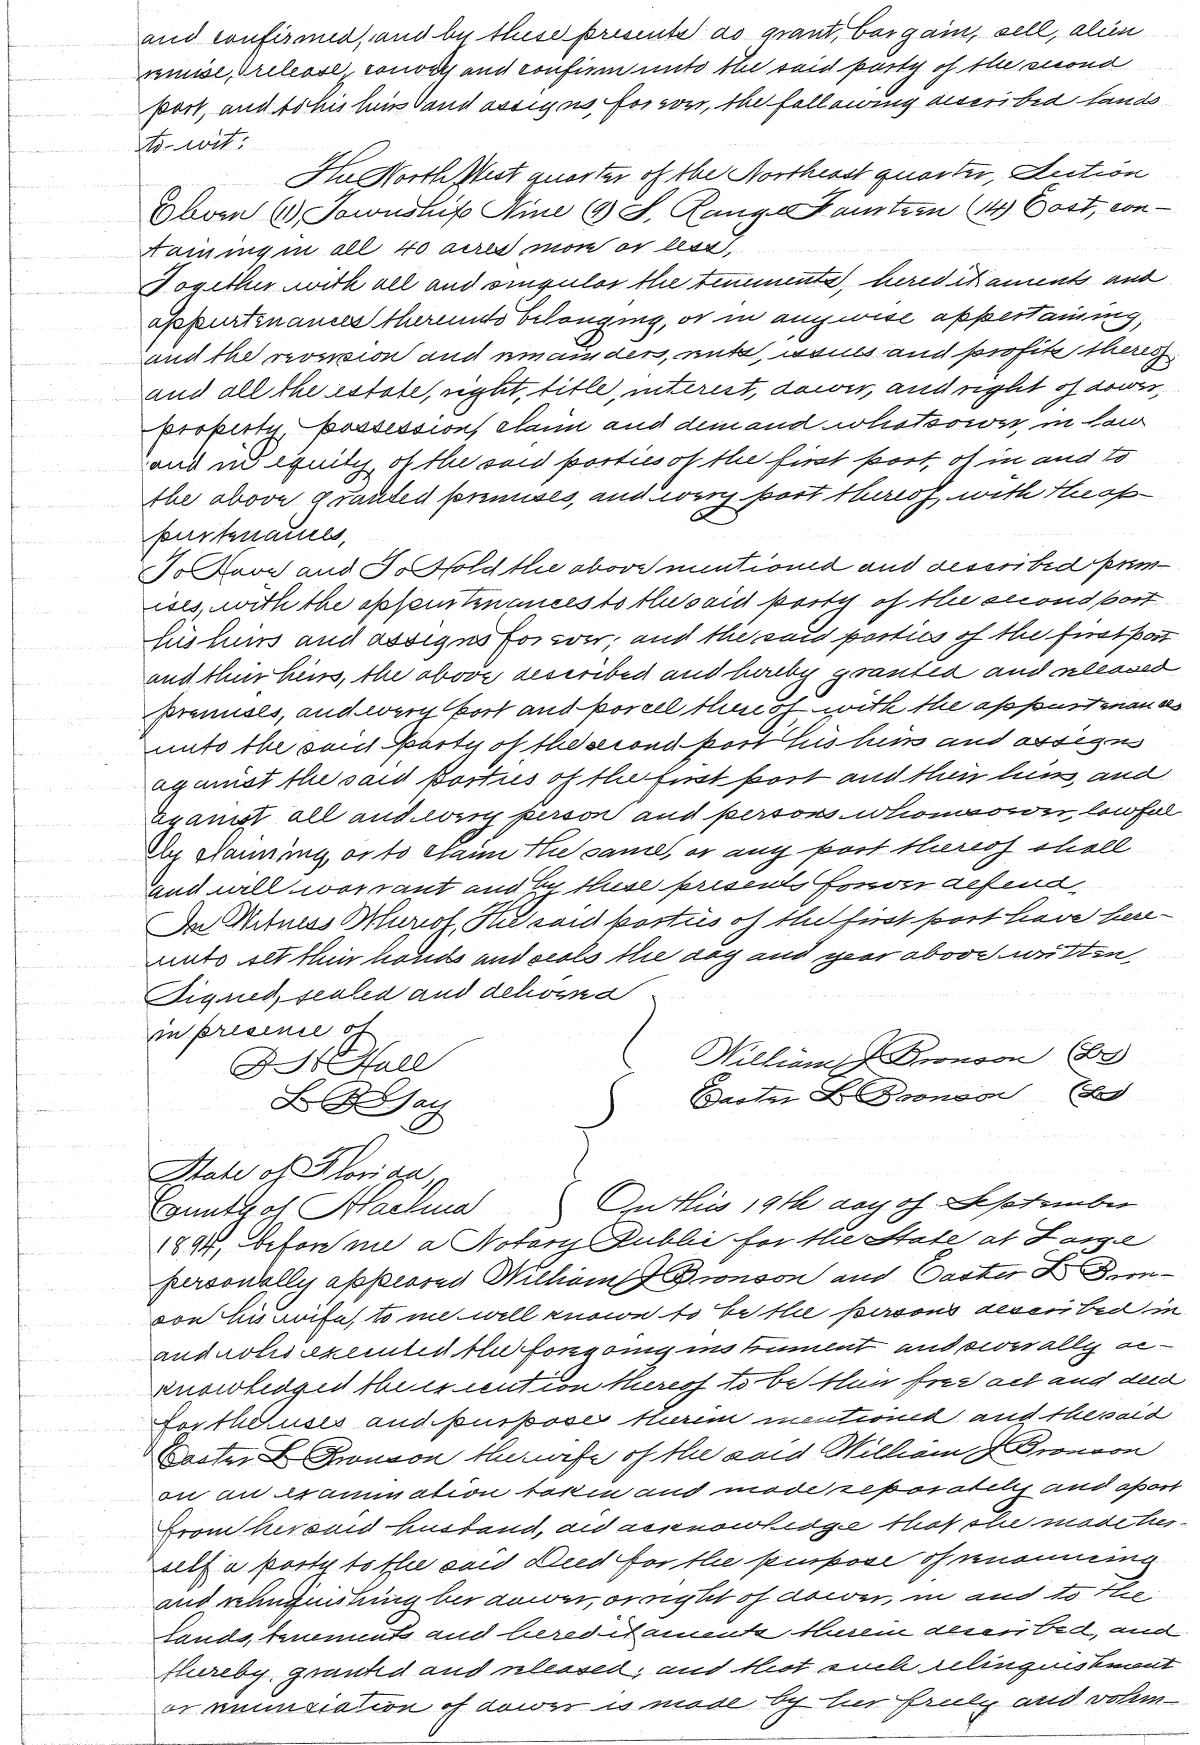 and confirmed, and by these presents do grant, bargain, sell, alien
remise, release, convey and confirm unto the said party of the second
part, and to his heirs and assigns, forever, the following described lands
to-wit:
The North West quarter of the Northeast quarter, Section
Eleven (11) Township Nine (9) S, Range Fourteen (14) East, con-
taining in all 40 acres more or less,
Together with all and singular the tenements, hereditaments and
appurtenances thereunto belonging, or in anywise appertaining,
and the reversion and remainders, rents, issues and profits thereof
and all the estate, right, title, interest, dower, and right of dower,
property, possession, claim and demand whatsoever, in law
and in equity, of the said parties of the first part, of in and to
the above granted premises, and every part thereof, with the ap-
purtenances,
To Have and To Hold the above mentioned and described prem-
ises, with the appurtenances to the said party of the second part
his heirs and assigns forever; and the said parties of the first part
and their heirs, the above described and hereby granted and released
premises, and every part and parcell thereof, with the appurtenances
unto the said party of the second part his heirs and assigns
against the said parties of the first part and their heirs, and
against all and every person and persons whomsoever, lawful
ly claiming, or to claim the same, or any part thereof shall
and will warrant and by these presents forever defend.
In Witness Whereof, The said parties of the first part have here-
unto set their hands and seals the day and year above written,
Signed, sealed and delivered
in presence of
J H Hall
William J Bronson (LS)
L B Gay
Easter L Bronson (LS)
State of Florida,
County of Alachua
On this 19th day of September
1894, before me a Notary Public for the State at Large
personally appeared William J Bronson and Easter L Bron-
son his wife, to me well known to be the persons described in
and who executed the foregoing instrument and severally ac-
knowledged the execution thereof to be their free act and deed
for the uses and purposes therein mentioned and the said
Easter L Bronson the wife of the said William J Bronson
on an examination taken and made separately and apart
from her said husband, did acknowledge that she made her-
self a party to the said Deed for the purpose of renouncing
and relinquishing her dower, or right of dower, in and to the
lands, tenements and hereditaments therein described, and
thereby granted and released; and that such relinquishment
or renunciation of dower is made by her freely and volun-